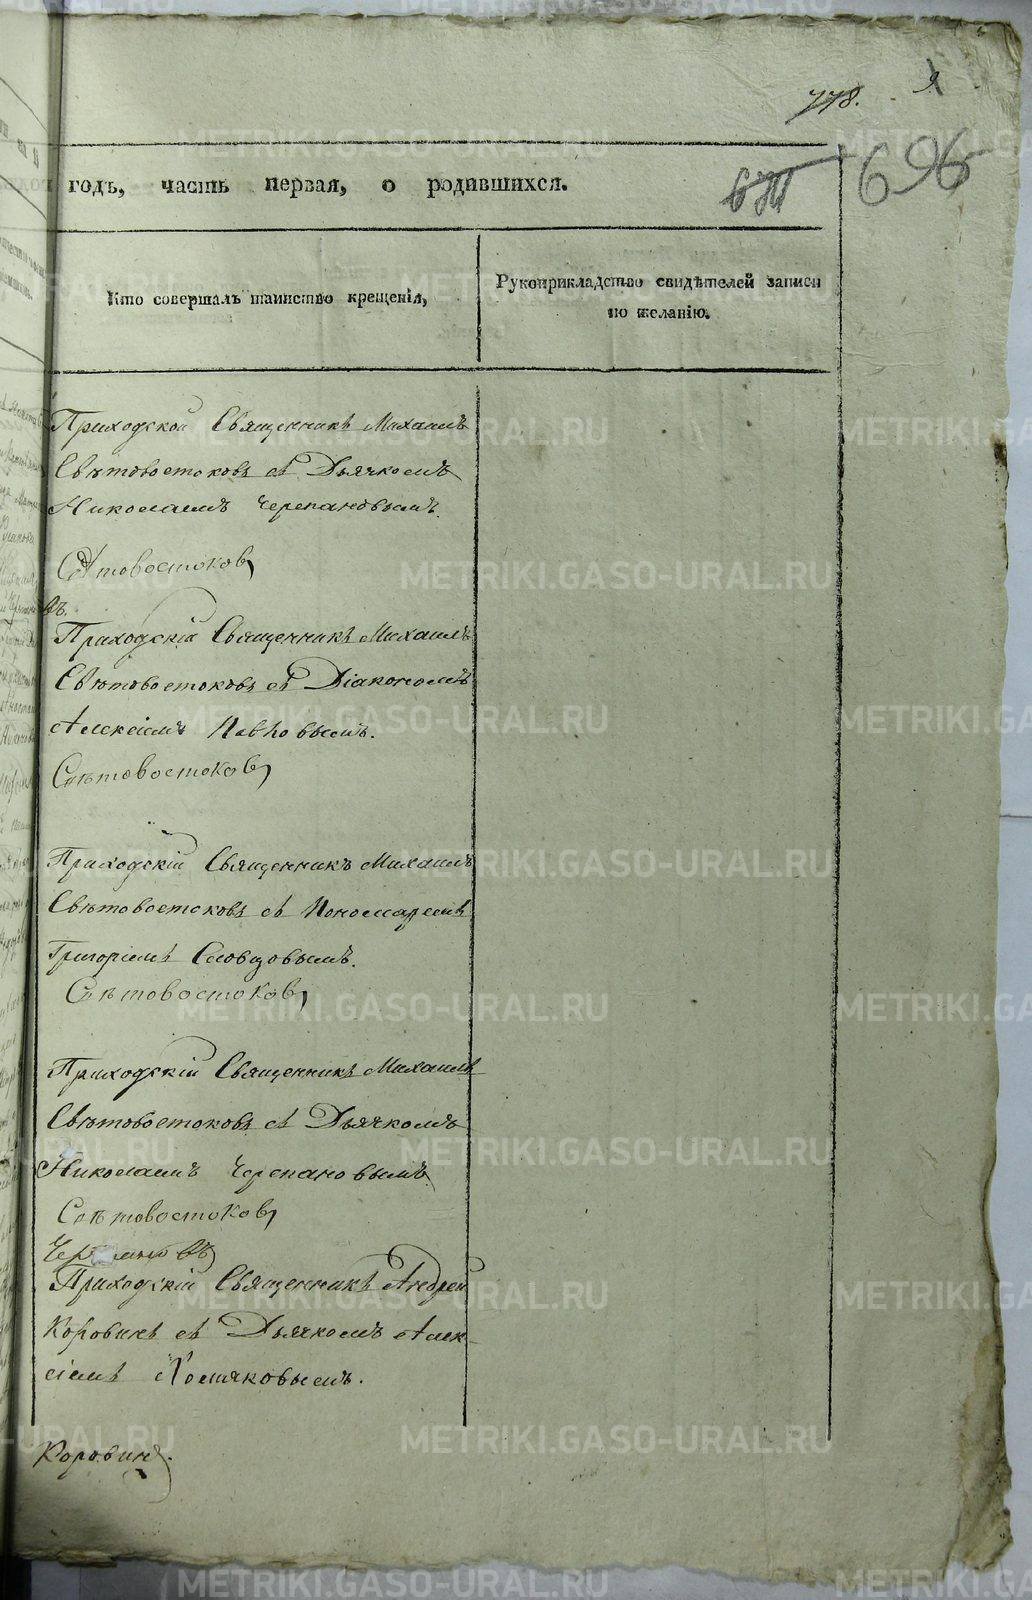 778. 9
696
годъ, часть первая, о родившихся.
Кто совершалъ таинство крещенія,
Рукоприкладство свидѣтелей записи
по желанію.
Приходской Священникъ Михаилъ
Свѣтовостоковъ съ Дьячкомъ
Николаемъ Черепановымъ.
Свѣтовостоковъ
Приходскій Священникъ Михаилъ
Свѣтовостоковъ съ Діакономъ
Алексіемъ
Свѣтовостоковъ
Приходскій Священникъ Михаилъ
Свѣтовостоковъ съ Пономаремъ
Григоріемъ Словцовымъ.
Свѣтовостоковъ
Приходскій Священникъ Михаилъ
Свѣтовостоковъ съ Дьячкомъ
Николаемъ Черепановымъ
Свѣтовостоковъ
Приходскій Священникъ Андрей
Коровинъ съ Дьячкомъ Алек-
сіемъ Хомяковымъ.
Коровинъ.
METRIKI.GASO-URAL.RU